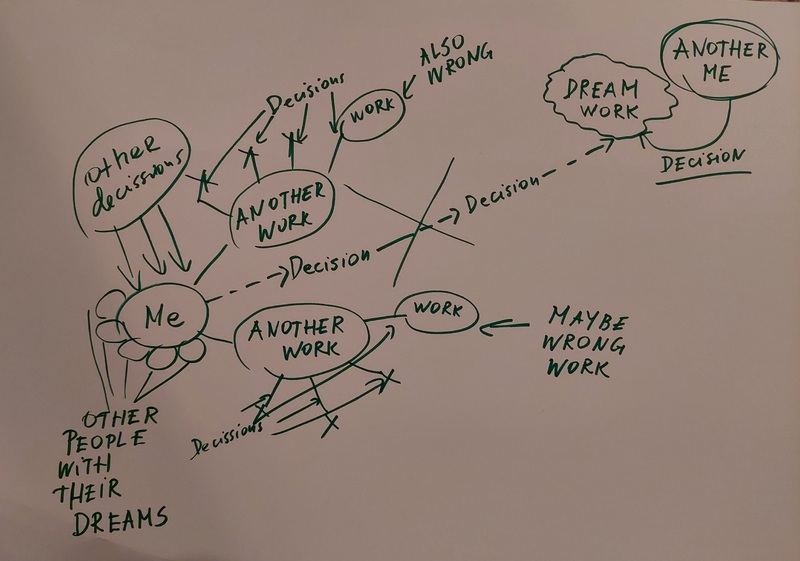 ALSO
WRONG
ANOTHER
ME
DREAM
WORK
DECISION
Decisions
WORK
other
decissions
ANOTHER
WORK
Decision
Decision
Me
ANOTHER
WORK
WORK
MAYBE
WRONG
WORK
Decissions
OTHER
PEOPLE
WITH
THEIR
DREAMS